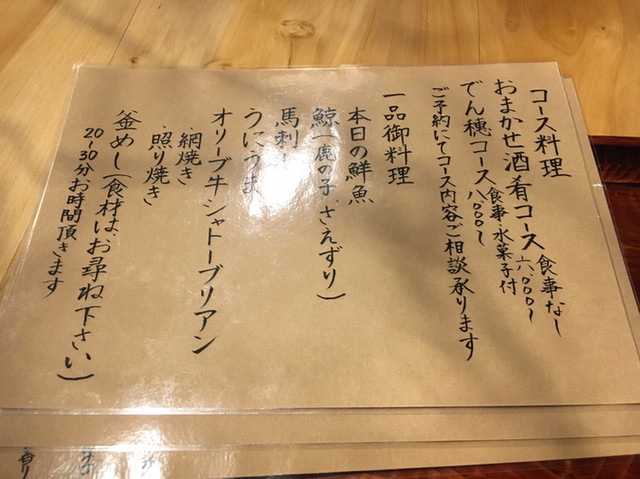 コース料理
おまかせ酒肴コース 食事なし 六、〇〇〇〜
でん穂コース 食事・水菓子付 八、〇〇〇〜
ご予約にてコース内容ご相談承ります
一品御料理
本日の鮮魚
鯨(鹿の子、さえずり)
馬刺し
うにうま
オリーブ牛シャトーブリアン
・網焼き
・照り焼き
釜めし(食材は、お尋ね下さい)
20〜30分お時間頂きます